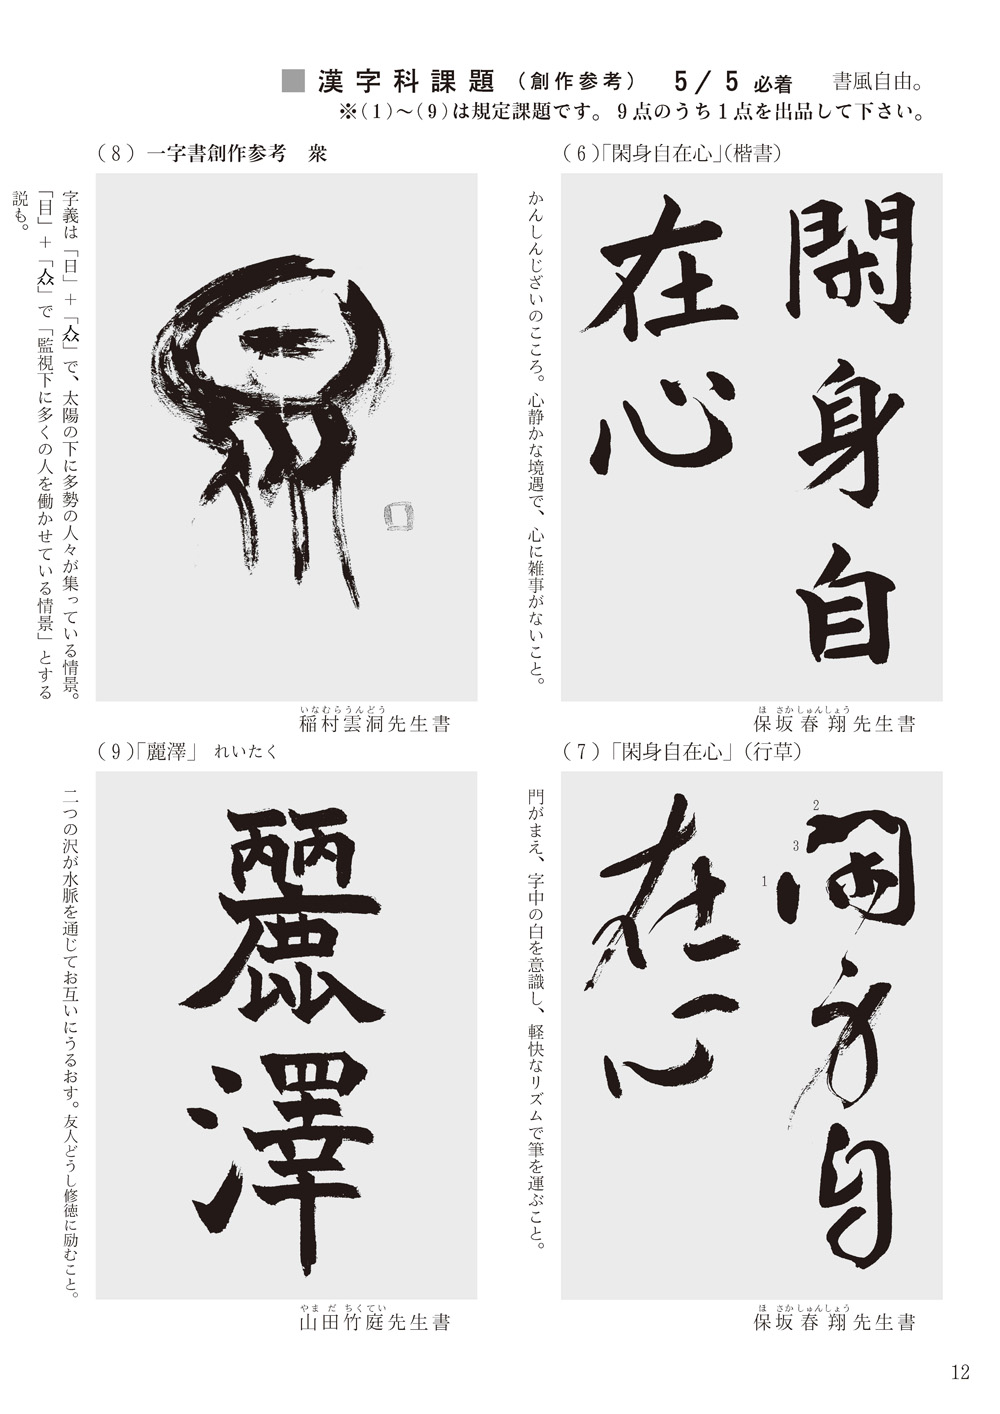 ■ 漢字科課題（創作参考） 5／5 必着 書風自由。
※(1)～(9)は規定課題です。9点のうち1点を出品して下さい。
（6）「閑身自在心」（楷書）
閑身自
在心
かんしんじざいのこころ。心静かな境遇で、心に雑事がないこと。
ほさかしゅんしょう
保坂春翔先生書
（7）「閑身自在心」（行草）
閑身自
在心
1
2
3
門がまえ、字中の白を意識し、軽快なリズムで筆を運ぶこと。
ほさかしゅんしょう
保坂春翔先生書
（8）一字書創作参考 衆
衆
字義は「日」＋「㐺」で、太陽の下に多勢の人々が集っている情景。
「目」＋「㐺」で「監視下に多くの人を働かせている情景」とする
説も。
いなむらうんどう
稲村雲洞先生書
（9）「麗澤」 れいたく
麗澤
二つの沢が水脈を通じてお互いにうるおす。友人どうし修徳に励むこと。
やまだちくてい
山田竹庭先生書
12